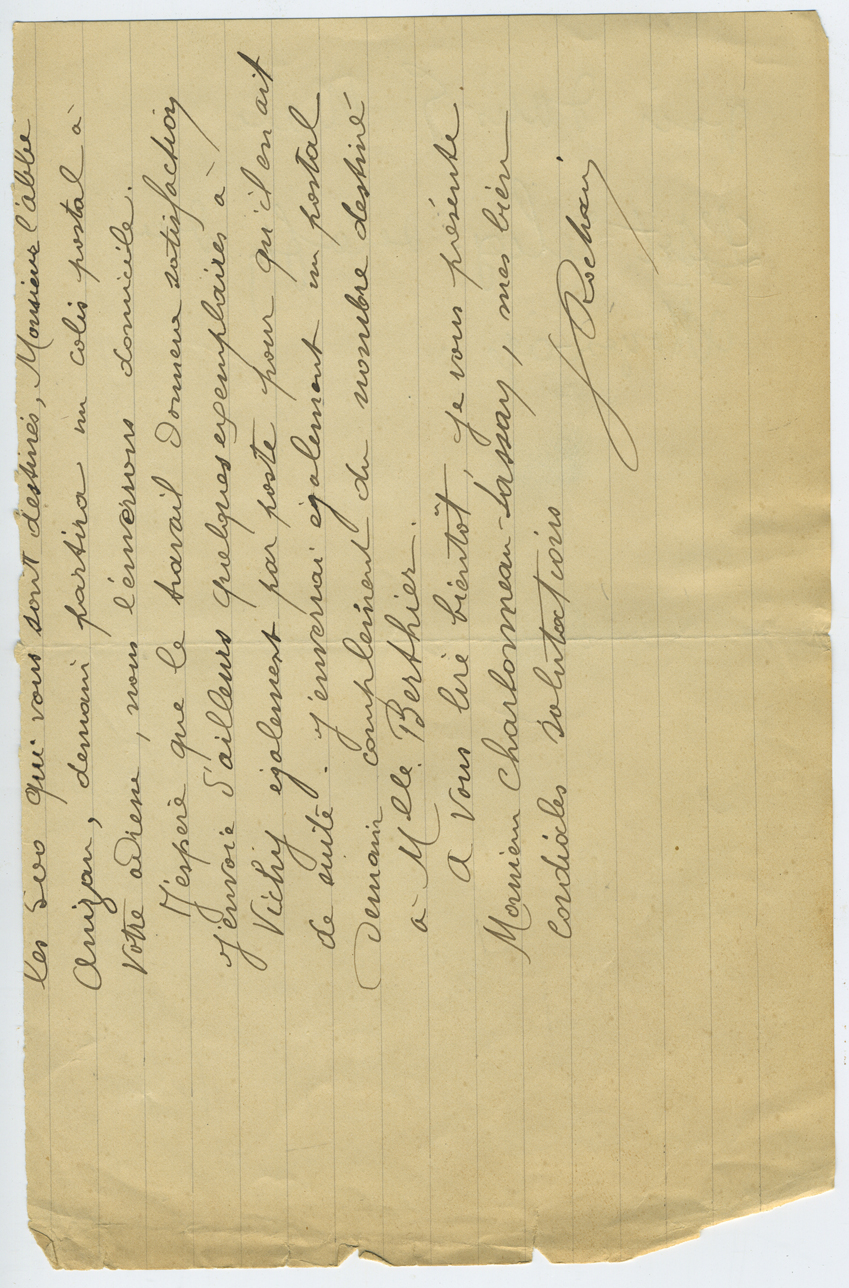 les 500 qui vous sont destinés, Monsieur l'abbé
Anizan, demain partira un colis postal à
votre adresse, nous l'enverrons domicile.
J'espère que le travail donnera satisfaction
j'envoie d'ailleurs quelques exemplaires à
Vichy également par poste pour qu'il en ait
de suite - j'enverrai également un postal
demain complément du nombre destiné
à Melle Berthier.
A vous lire bientôt, je vous présente.
Monsieur Charbonneau-Lassay, mes bien
cordiales salutations